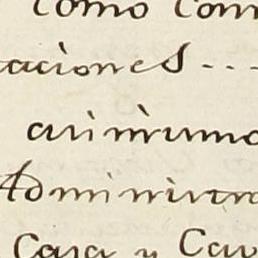 Como Com
taciones ...
assimismo
Administra
Casa y Cau